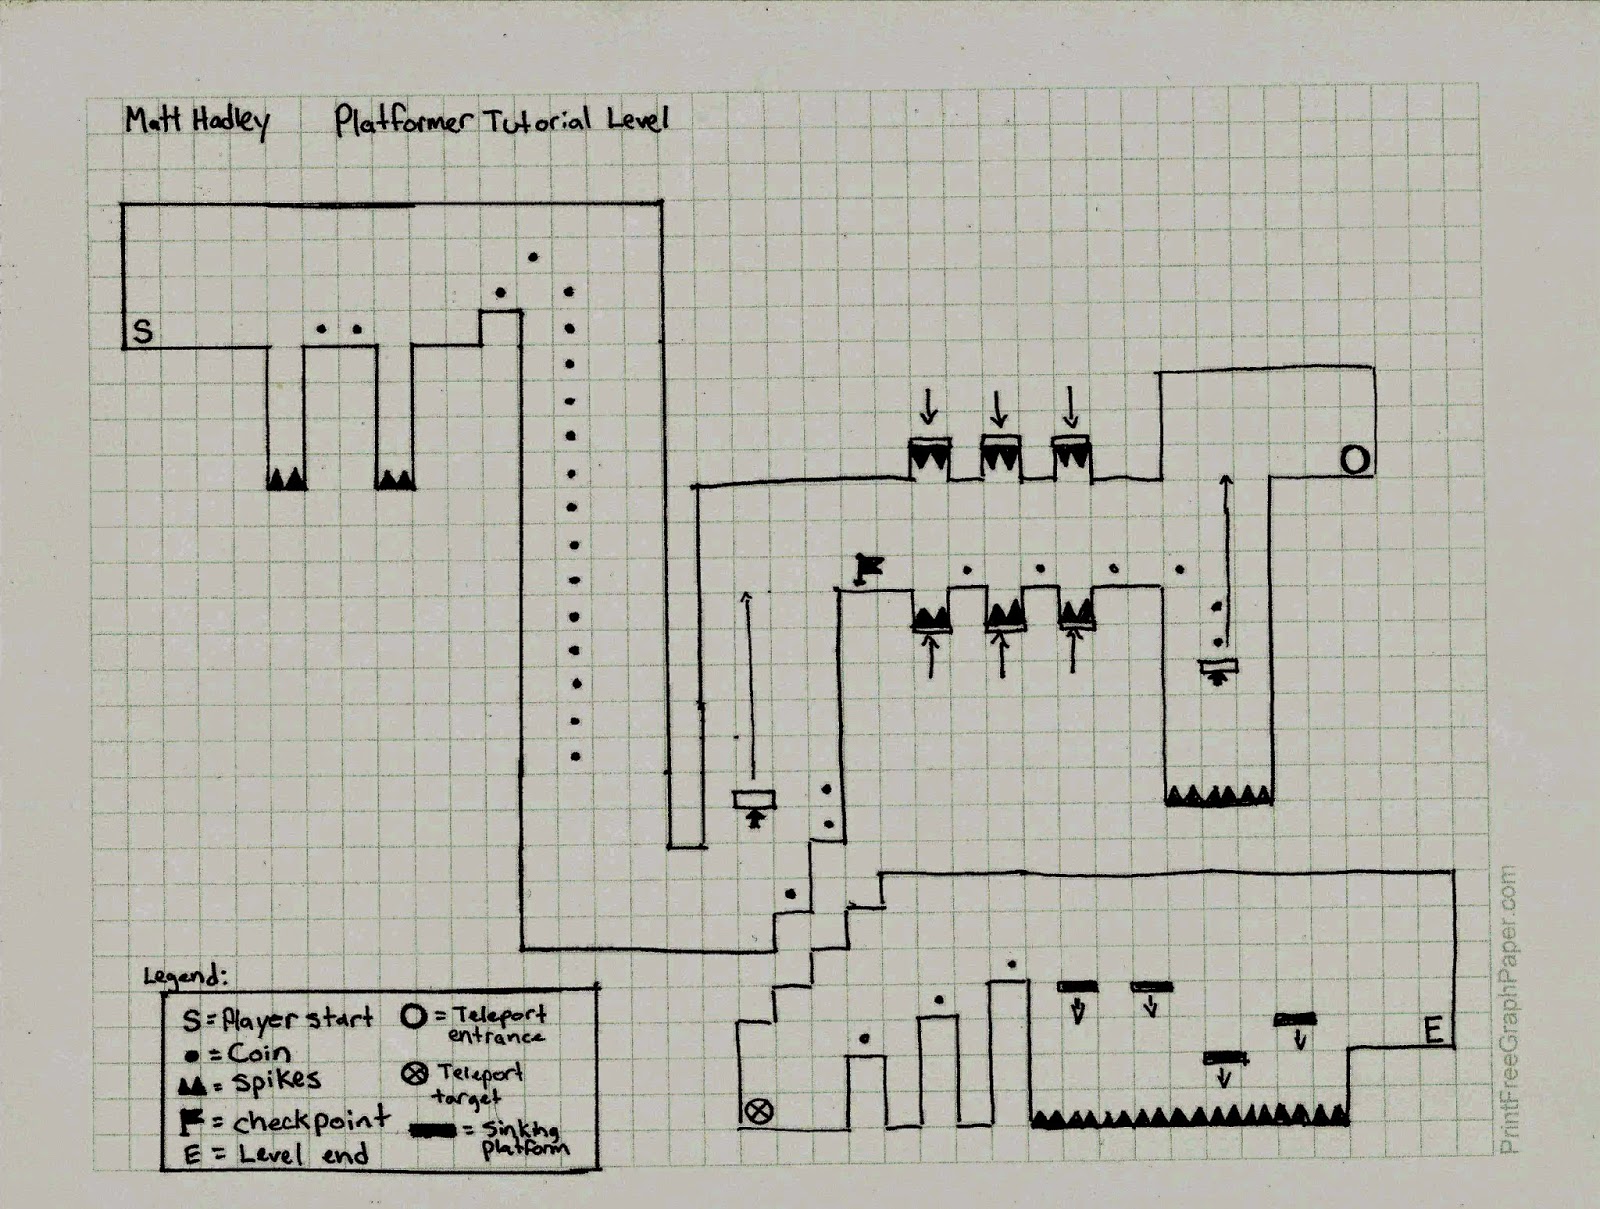 Matt Hadley Platformer Tutorial Level
S
O
E
Legend:
S = Player start
● = Coin
▲▲ = Spikes
= checkpoint
E = Level end
O = Teleport
entrance
⊗ Teleport
target
= Sinking
platform
PrintFreeGraphPaper.com